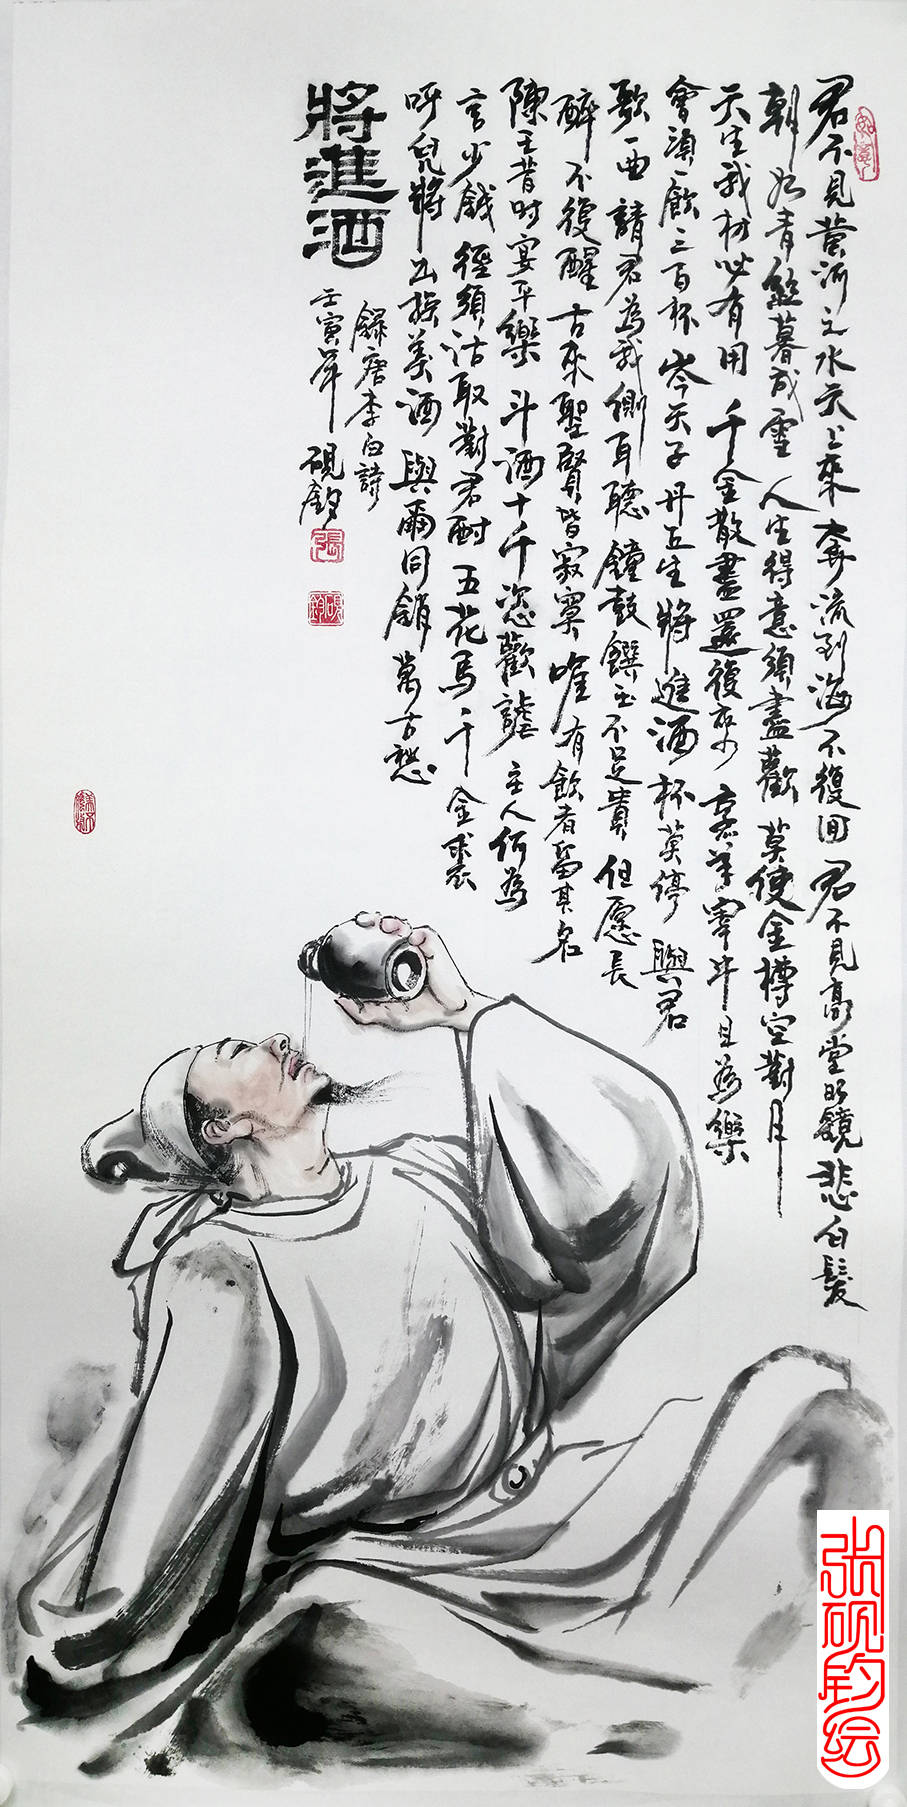 君不見黃河之水天上來 奔流到海不復回 君不見高堂明鏡悲白髮
朝如青絲暮成雪 人生得意須盡歡 莫使金樽空對月
天生我材必有用 千金散盡還復來 烹羊宰牛且為樂
會須一飲三百杯 岑夫子丹丘生將進酒杯莫停 與君
歌一曲 請君為我側耳聽 鐘鼓饌玉不足貴 但愿長
醉不復醒 古來聖賢皆寂寞 唯有飲者留其名
陳王昔時宴平樂 斗酒十千恣歡謔 主人何為
言少錢 徑須沽取對君酌 五花馬千金裘
呼兒將出換美酒 與爾同銷萬古愁
將進酒
錄唐李白詩
壬寅年 硯鈞
张砚钧绘